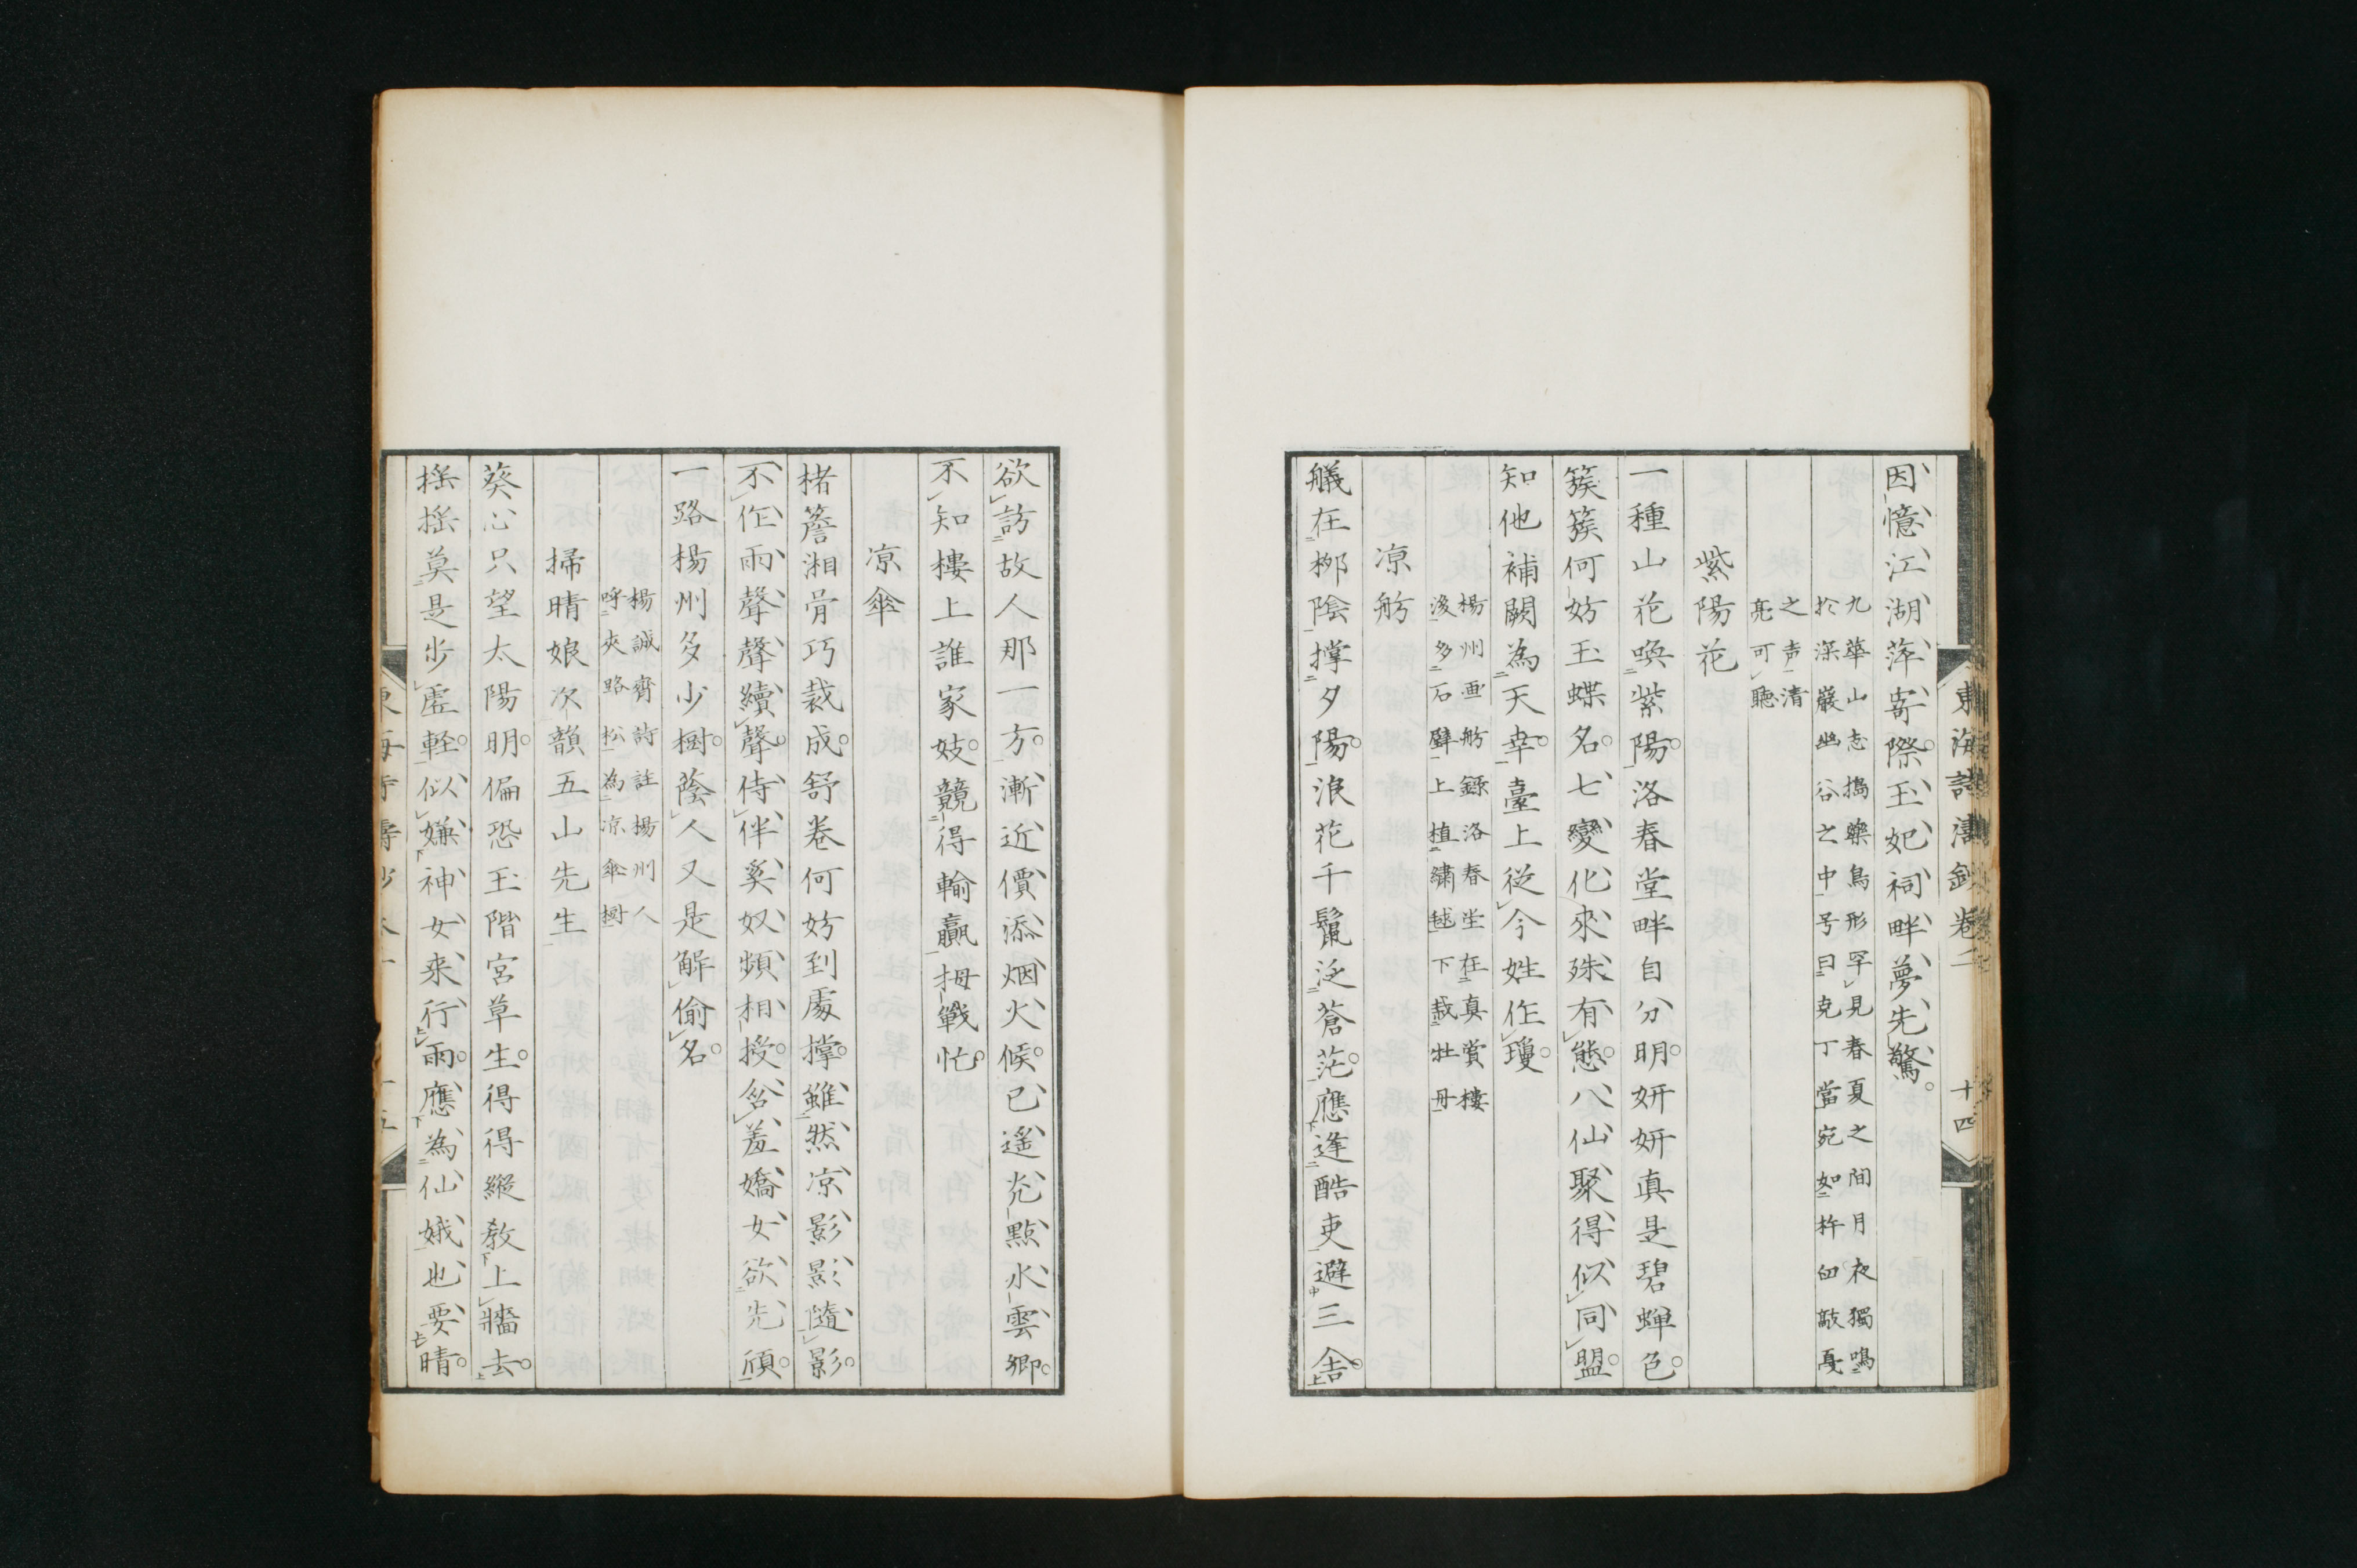 東海詩濤鈔卷二 十四
因憶江湖萍寄際玉妃祠畔夢先驚
九華山志搗藥鳥形罕見春夏之間月夜獨鳴
於深巖幽谷之中号曰克丁當宛如杵臼敲戞
之声清
亮可聽
紫陽花
一種山花喚紫陽洛春堂畔自分明妍妍真是碧蝉色
簇簇何妨玉蝶名七變化來殊有態八仙聚得似同盟
知他補闕為天幸臺上従今姓作瓊
楊州画舫錄洛春坐在真賞樓
後多石壁上植繡毬下栽牡丹
凉舫
艤在柳陰撑夕陽浪花千鬣泛蒼茫應逢酷吏避三舍
欲訪故人那一方漸近價添烟火候已遙充點水雲郷
不知樓上誰家妓競得輸贏拇戰忙
凉傘
楮簷湘骨巧裁成舒卷何妨到處撑雖然凉影影隨影
不作雨聲聲續聲侍伴奚奴頻相授含羞嬌女欲先傾
一路楊州多少樹蔭人又是觧偷名
楊誠齊詩註楊州人
呼夾路松為凉傘樹
掃晴娘次韻五山先生
葵心只望太陽明偏恐玉階宮草生得得縱教上牆去
揺揺莫是步虛軽似嫌神女来行雨應為仙娥也要晴